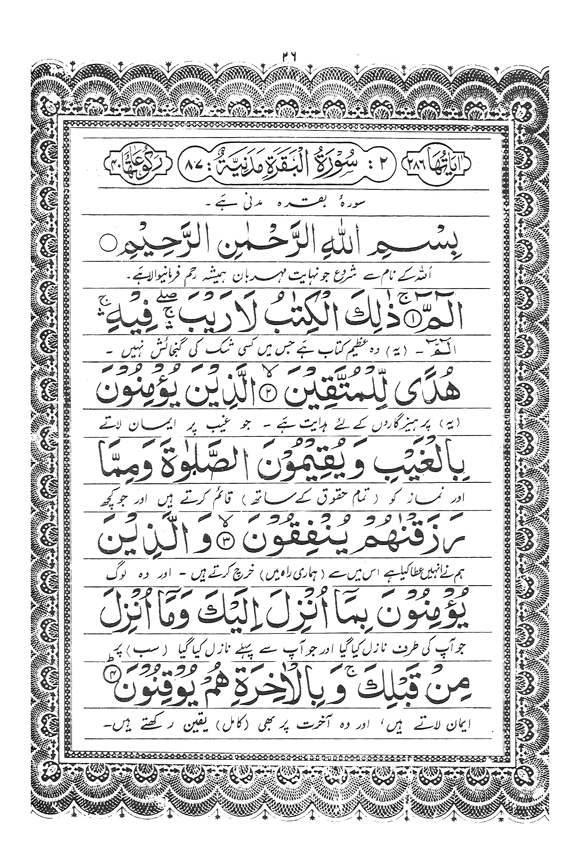 ٢٦
اٰیَاتُهَا ٢٨٦ ٢: سُوْرَةُ الْبَقَرَةِ مَدَنِیَّةٌ :٨٧ رُكُوْعَاتُهَا ٤٠
سورۂ بقرہ مدنی ہے ۔
بِسْمِ اللهِ الرَّحْمٰنِ الرَّحِيْمِ ○
اللہ کے نام سے شروع جو نہایت مہربان ہمیشہ رحم فرمانیوالا ہے۔
الٓمّٓ ۚ﴿١﴾ ذٰلِكَ الْكِتٰبُ لَا رَيْبَ ۛۖۚ فِيْهِ ۛۚ
الٓمّٓ ۔ (یہ) وہ عظیم کتاب ہے جس میں کسی شک کی گنجائش نہیں ۔
هُدًى لِّلْمُتَّقِيْنَ ۙ﴿٢﴾ الَّذِيْنَ يُؤْمِنُوْنَ
(یہ) پرہیزگاروں کے لئے ہدایت ہے ۔ جو غیب پر ایمان لاتے
بِالْغَيْبِ وَيُقِيْمُوْنَ الصَّلٰوةَ وَمِمَّا
اور نماز کو (تمام حقوق کے ساتھ) قائم کرتے ہیں اور جو کچھ
رَزَقْنٰهُمْ يُنْفِقُوْنَ ۙ﴿٣﴾ وَالَّذِيْنَ
ہم نے انہیں عطا کیا ہے اس میں سے (ہماری راہ میں) خرچ کرتے ہیں ۔ اور وہ لوگ
يُؤْمِنُوْنَ بِمَآ اُنْزِلَ اِلَيْكَ وَمَآ اُنْزِلَ
جو آپ کی طرف نازل کیا گیا اور جو آپ سے پہلے نازل کیا گیا (سب) پر
مِنْ قَبْلِكَ ۚ وَبِالْاٰخِرَةِ هُمْ يُوْقِنُوْنَ ؕ﴿٤﴾
ایمان لاتے ہیں، اور وہ آخرت پر بھی (کامل) یقین رکھتے ہیں۔